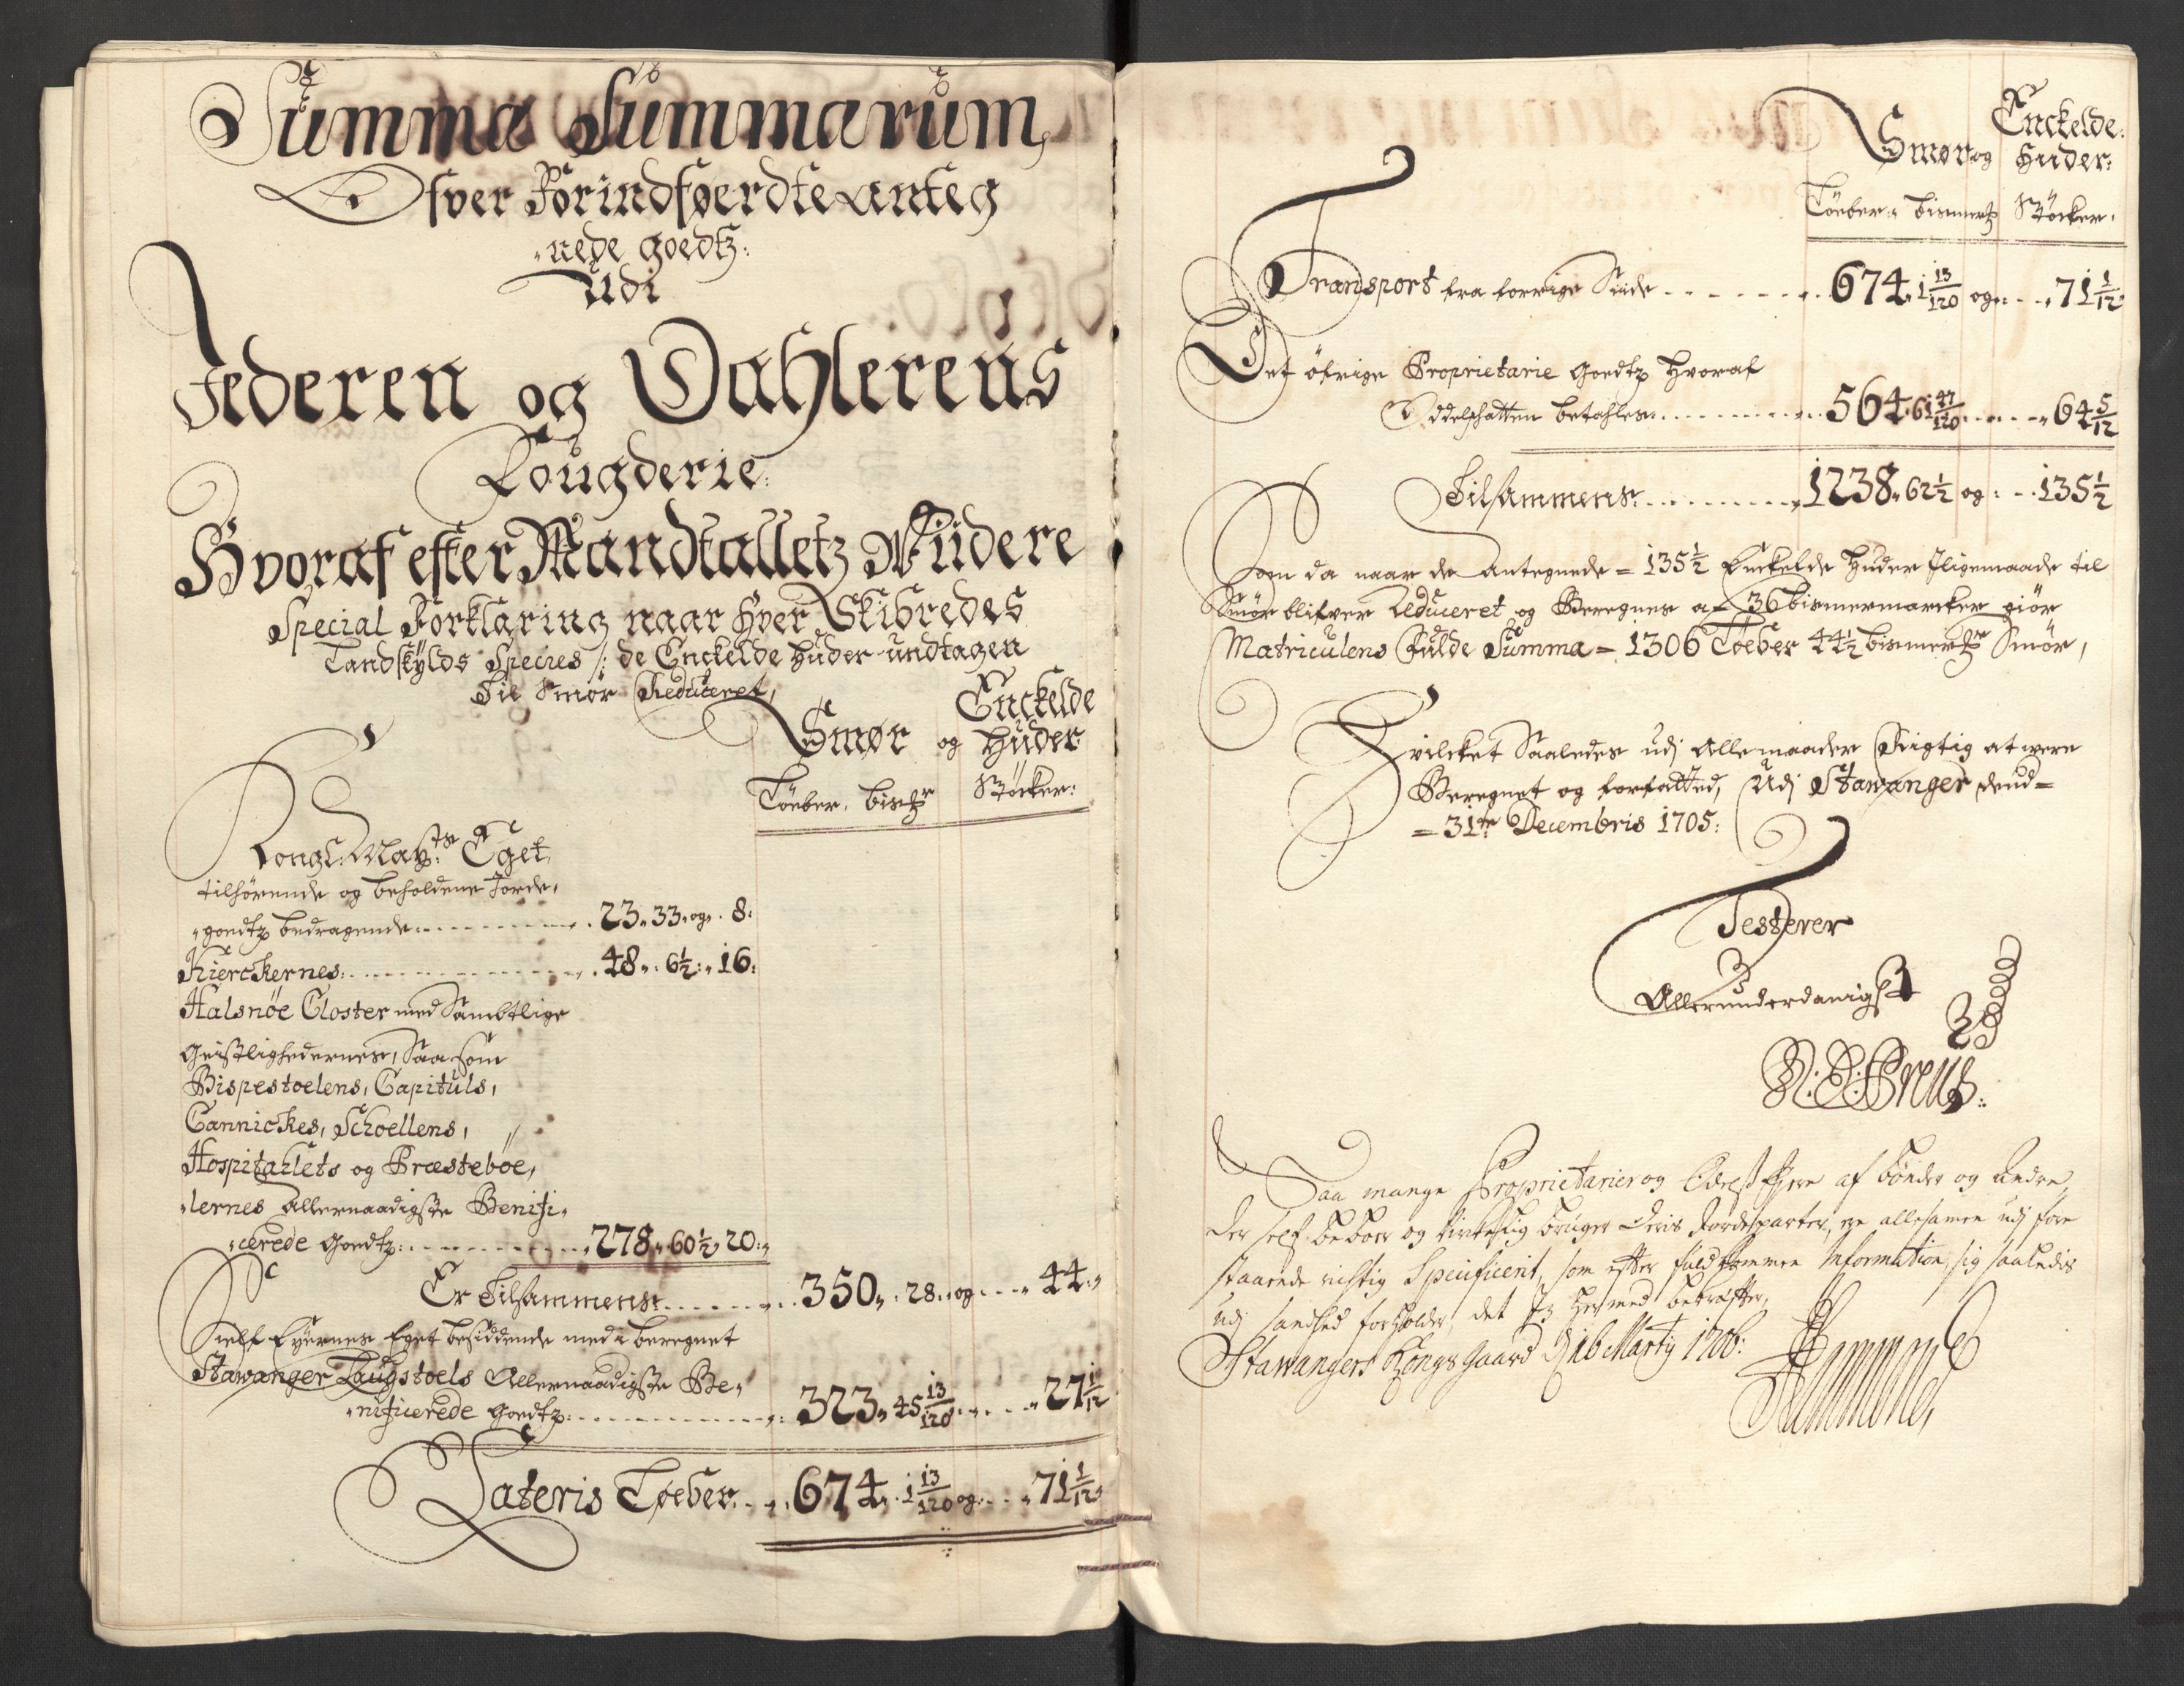 Summa Summarum,
Ofver Forindføerdte Anteg
"nede Goedtz:
Udi
Jederen og Dahlerens
Fougderie:
Hvoraf efter Mandtalletz Widere
Special Forklaring naar hver Skibredes
Landskylds Species /: de Enckelde Huder undtagen
Til Smør Reduceret,
Smør og Enckelde Huder
Töeber. bismr Støcker:
Kongl: Mayts: Eget
tilhörende og beholdene Jorde,
"goedtz bedragende: . . . . 23. 33. og. 8:
Kierckernes: . . . . 48. 6½: 16:
Halsnöe Closter med Sambtlige
Geistlighedernes, Saasom
Bispestoelens, Capituls,
Cannickes, Schoellens,
Hospitahlets og Præsteböe,
"lernes Allernaadigste Benifi,
"cerede Goedtz: . . . . 278. 60½. 20:
Er Tilsammens: . . . . 350. 28. og . . 44:
Self Eyernes Eget besiddende med beregnet
Stawanger Laugstoels Allernaadigste Be,
"nificerede Goedtz: . . . . 323. 45 13/120 . . . . 27 1/12
Lateris Töeber . . . 674. 1 13/120 og . . . 71 1/12
Smør og Enckelde Huder:
Töeber: bismertz Støcker.
Transport fra forrige Siide . . . . 674. 1 13/120 og . . . 71 1/12
Det öfrige Proprietarie Goedtz hvoraf
Oddelschatten betahles: . . . . 564. 61 47/120 . . . . 64 5/12
Tilsammens: . . . . 1238. 62½ og: . . 135½
Som da naar de Antegnede = 135½ Enckelde Huder Iligemaade til
Smör blifver Reduceret og Beregnes a = 36 bismermarcker giör
Matriculens Fulde Summa = 1306 Töeber 44½ bismertz Smör,
Hvilcket Saaledes udj Alle maader Rigtig at were
Beregnet og forfatted, Udj Stawanger dend =
= 31te Decembris 1705:
Testerer
Allerunderdanigst
Saa mange Proprietarier og Odelss Eyere af bönder og Andre,
der self beboer og virkelig bruger deris Jordeparter, ere allesamen udj fore
staaende richtig Specificerit, som efter fuldkommen Information sig saaledis
udj sandhed forholder, det Jeg hermed bekræfter,
Stawangers Kongs Gaard d 16 Marty 1706: